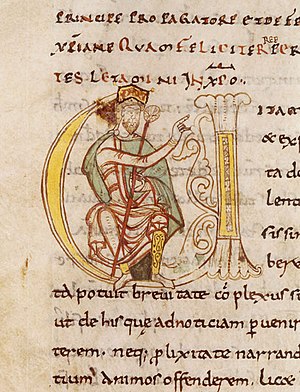 PRINCIPE PROPAGATORE ET DEFE
XPIANE QUAM FELICITER
TES LETA
ITA
ta do
lenti
sissin
berx
ta potuit breuitate cōplexus si
ut de his que ad noticiam p uenir
terem. neq; plixitate narrand
tium animos offenderem. lice